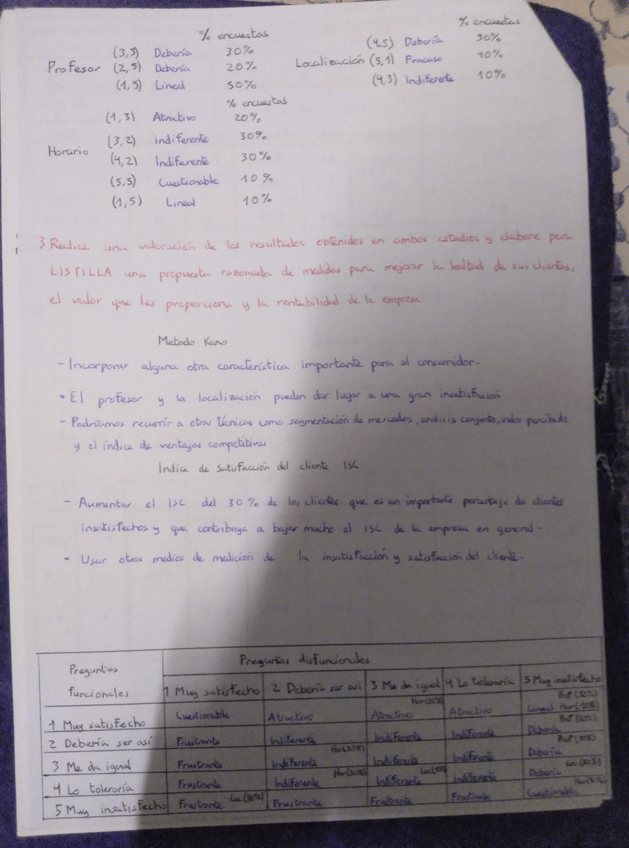 % encuestas
(3,5) Debería 30%
Profesor (2,5) Debería 20%
(1,5) Lineal 50%
% encuestas
(4,5) Debería 50%
Localización (5,1) Fracaso 40%
(4,3) Indiferente 10%
% encuestas
(1,3) Atractivo 20%
(3,2) indiferente 30%
Horario
(4,2) Indiferente 30%
(5,5) Cuestionable 10%
(1,5) Lineal 10%
3 Realice una valoración de los resultados obtenidos en ambos estudios y elabore para
LISTILLA una propuesta razonada de medidas para mejorar la lealtad de sus clientes,
el valor que les proporciona y la rentabilidad de la empresa
Metodo Kano
- Incorporar alguna otra característica importante para el consumidor.
- El profesor y la localización pueden dar lugar a una gran insatisfacción
- Podríamos recurrir a otras técnicas como segmentación de mercados, análisis conjunto, valor percibido
y el índice de ventajas competitivas
Indice de Satisfacción del cliente ISC
- Aumentar el ISC del 30% de los clientes que es un importante porcentaje de clientes
insatisfechos y que contribuye a bajar mucho el ISC de la empresa en general.
- Usar otros medios de medición de la insatisfacción y satisfacción del cliente.
Preguntas funcionales
Preguntas disfuncionales
1 Muy satisfecho 2 Debería ser así 3 Me da igual 4 Lo toleraría 5 Muy insatisfecho
1 Muy satisfecho Cuestionable Atractivo Atractivo Atractivo Lineal
2 Debería ser así Frustrante Indiferente Indiferente Indiferente Debería
3 Me da igual Frustrante Indiferente Indiferente Indiferente Debería
4 Lo toleraría Frustrante Indiferente Indiferente Indiferente Debería
5 Muy insatisfecho Frustrante Frustrante Frustrante Frustrante Cuestionable